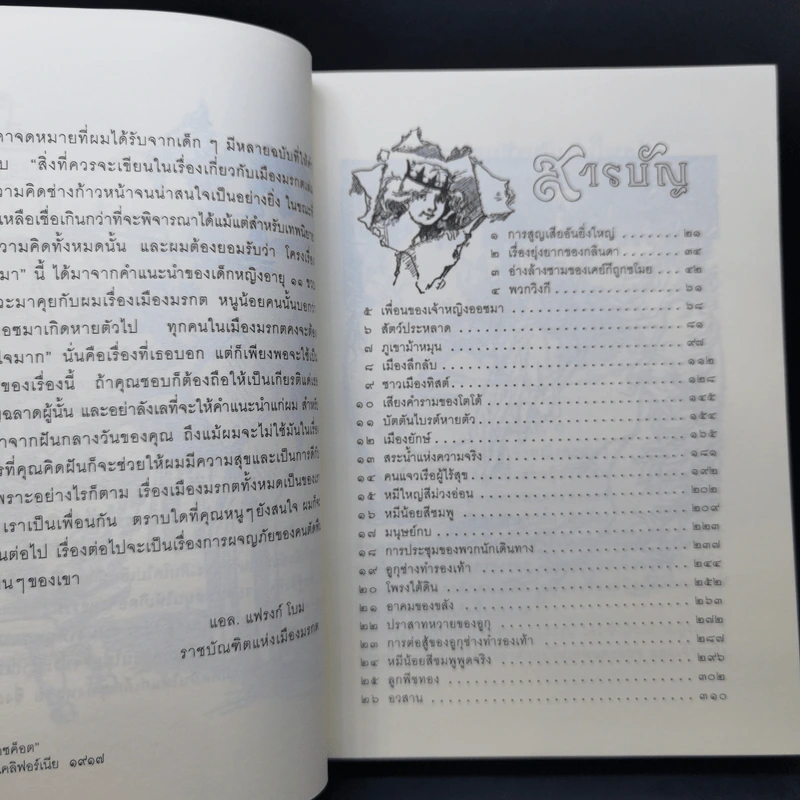 าจดหมายที่ผมได้รับจากเด็ก ๆ มีหลายฉบับที่ให้
"สิ่งที่ควรจะเขียนในเรื่องเกี่ยวกับเมืองมรกต
วามคิดช่างก้าวหน้าจนน่าสนใจเป็นอย่างยิ่ง ในขณะที่
เหลือเชื่อเกินกว่าที่จะพิจารณาได้แม้แต่สำหรับเทพนิยาย
วามคิดทั้งหมดนั้น และผมต้องยอมรับว่า โครงเรื่อง
มา" นี้ ได้มาจากคำแนะนำของเด็กหญิงอายุ ๑๑ ขวบ
วะมาคุยกับผมเรื่องเมืองมรกต หนูน้อยคนนั้นบอกว่า
ออซมาเกิดหายตัวไป ทุกคนในเมืองมรกตคงจะต้อง
ใจมาก" นั่นคือเรื่องที่เธอบอก แต่ก็เพียงพอจะใช้เป็น
ของเรื่องนี้ ถ้าคุณชอบก็ต้องถือให้เป็นเกียรติแด่
ฉลาดผู้นั้น และอย่าลังเลที่จะให้คำแนะนำแก่ผม สำหรับ
าจากฝันกลางวันของคุณ ถึงแม้ผมจะไม่ใช้มันในเรื่อง
รที่คุณคิดฝันก็จะช่วยให้ผมมีความสุขและเป็นการดี
พราะอย่างไรก็ตาม เรื่องเมืองมรกตทั้งหมดเป็นของ
เราเป็นเพื่อนกัน ตราบใดที่คุณหนูๆยังสนใจ ผมก็จะ
นต่อไป เรื่องต่อไปจะเป็นเรื่องการผจญภัยของคนตัด
นๆของเขา
แอล. แฟรงก์ โบม
ราชบัณฑิตแห่งเมืองมรกต
อซค็อต"
คลิฟอร์เนีย ๑๙๑๗
สารบัญ
๑ การสูญเสียอันยิ่งใหญ่ ๒๑
๒ เรื่องยุ่งยากของกลินดา ๓๔
๓ อ่างล้างชามของเคย์กีถูกขโมย ๔๒
๔ พวกวิงกี ๖๑
๕ เพื่อนของเจ้าหญิงออซมา ๖๘
๖ สัตว์ประหลาด ๘๑
๗ ภูเขาม้าหมุน ๙๗
๘ เมืองลึกลับ ๑๑๒
๙ ชาวเมืองทิสต์ ๑๒๘
๑๐ เสียงคำรามของโตโต้ ๑๔๕
๑๑ บัตตันไบรต์หายตัว ๑๕๔
๑๒ เมืองยักษ์ ๑๖๕
๑๓ สระน้ำแห่งความจริง ๑๘๑
๑๔ คนแจวเรือผู้ไร้สุข ๑๙๒
๑๕ หมีใหญ่สีม่วงอ่อน ๒๐๒
๑๖ หมีน้อยสีชมพู ๒๐๙
๑๗ มนุษย์กบ ๒๒๓
๑๘ การประชุมของพวกนักเดินทาง ๒๓๗
๑๙ อูกุช่างทำรองเท้า ๒๔๔
๒๐ โพรงใต้ดิน ๒๕๒
๒๑ อาคมของขลัง ๒๖๓
๒๒ ปราสาทหวายของอูกุ ๒๗๒
๒๓ การต่อสู้ของอูกุช่างทำรองเท้า ๒๘๗
๒๔ หมีน้อยสีชมพูพูดจริง ๒๙๖
๒๕ ลูกพีชทอง ๓๐๒
๒๖ อวสาน ๓๑๐